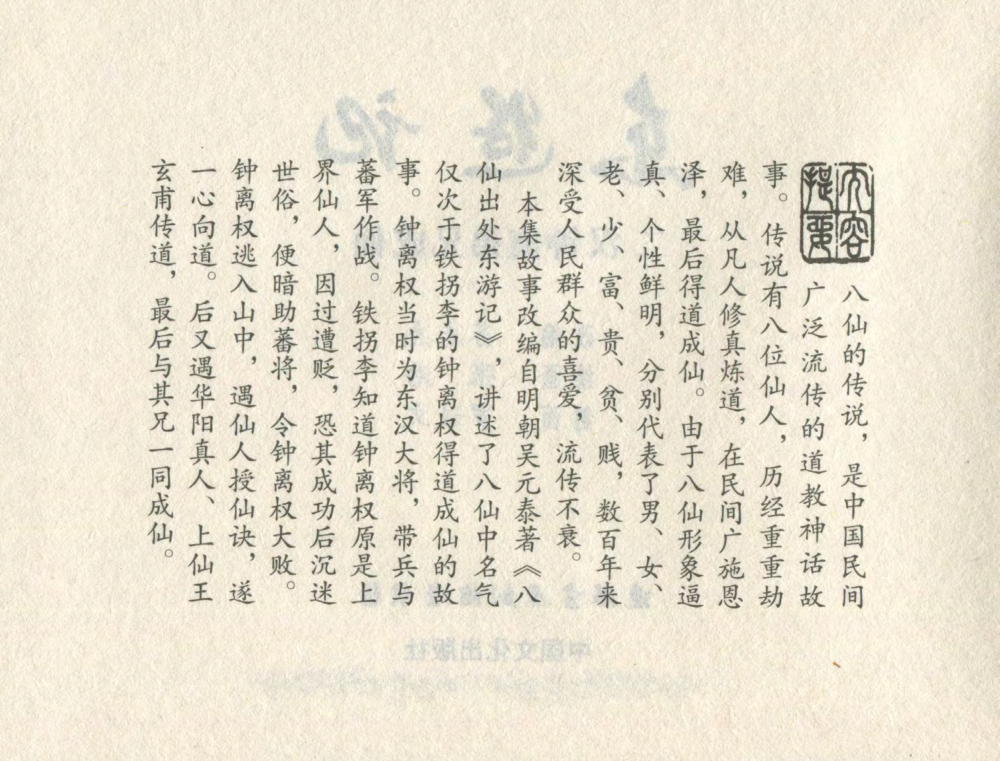 内容
提要
八仙的传说，是中国民间
广泛流传的道教神话故
事。传说有八位仙人，历经重重劫
难，从凡人修真炼道，在民间广施恩
泽，最后得道成仙。由于八仙形象逼
真、个性鲜明，分别代表了男、女、
老、少、富、贵、贫、贱，数百年来
深受人民群众的喜爱，流传不衰。
本集故事改编自明朝吴元泰著《八
仙出处东游记》，讲述了八仙中名气
仅次于铁拐李的钟离权得道成仙的故
事。钟离权当时为东汉大将，带兵与
蕃军作战。铁拐李知道钟离权原是上
界仙人，因过遭贬，恐其成功后沉迷
世俗，便暗助蕃将，令钟离权大败。
钟离权逃入山中，遇仙人授仙诀，遂
一心向道。后又遇华阳真人、上仙王
玄甫传道，最后与其兄一同成仙。
东游记
中国文化出版社